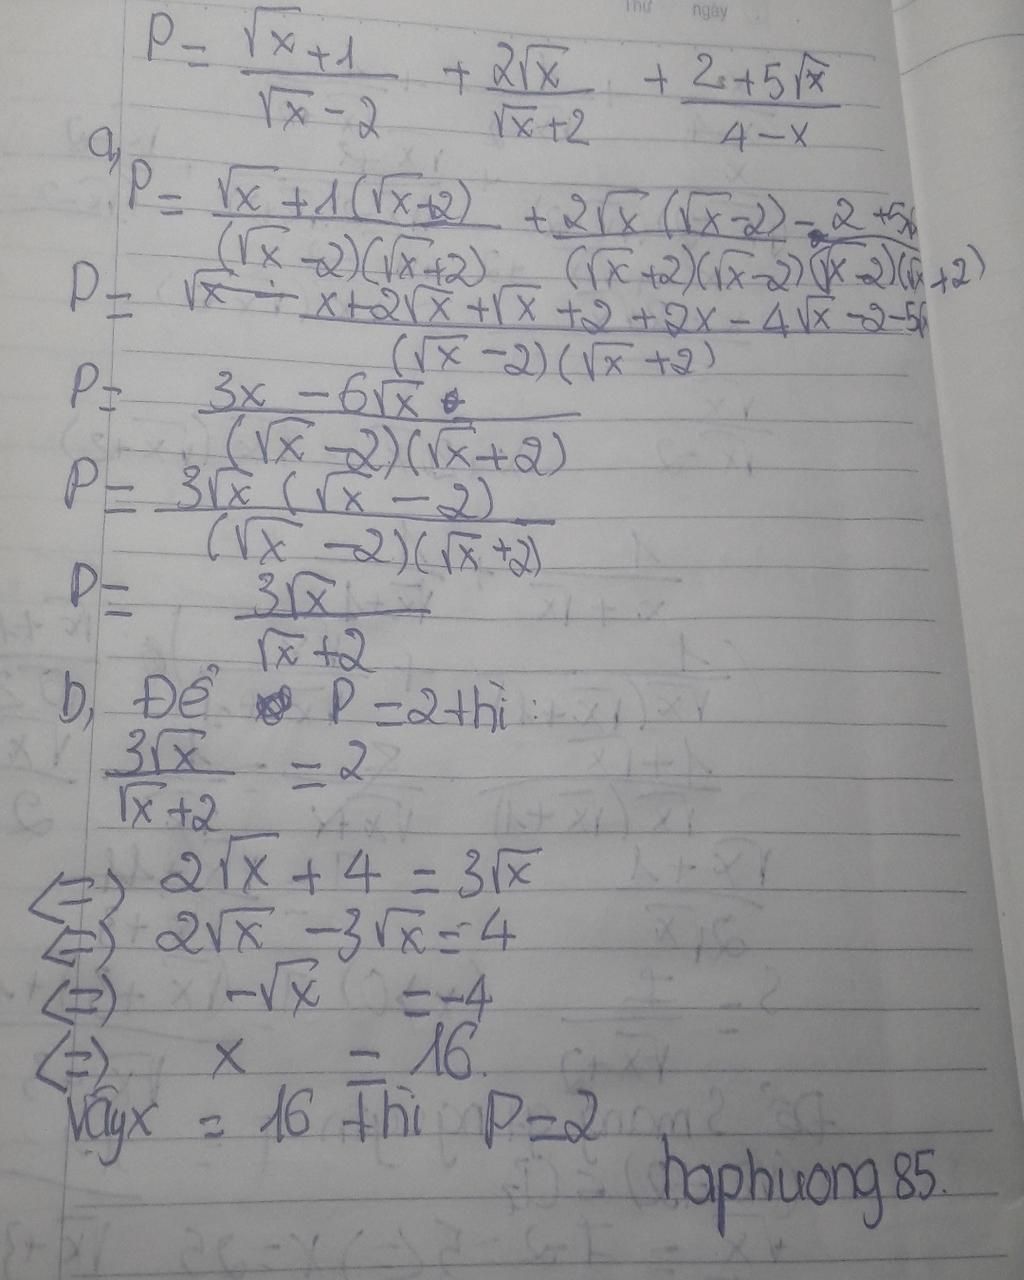 Thứ ngày
P = \frac{\sqrt{x}+1}{\sqrt{x}-2} + \frac{2\sqrt{x}}{\sqrt{x}+2} + \frac{2+5\sqrt{x}}{4-x}
a,
P = \frac{\sqrt{x}+1(\sqrt{x}+2)}{(\sqrt{x}-2)(\sqrt{x}+2)} + \frac{2\sqrt{x}(\sqrt{x}-2)}{(\sqrt{x}+2)(\sqrt{x}-2)} - \frac{2+5\sqrt{x}}{(\sqrt{x}-2)(\sqrt{x}+2)}
P = \frac{x+2\sqrt{x}+\sqrt{x}+2+2x-4\sqrt{x}-2-5\sqrt{x}}{(\sqrt{x}-2)(\sqrt{x}+2)}
P = \frac{3x-6\sqrt{x}}{(\sqrt{x}-2)(\sqrt{x}+2)}
P = \frac{3\sqrt{x}(\sqrt{x}-2)}{(\sqrt{x}-2)(\sqrt{x}+2)}
P = \frac{3\sqrt{x}}{\sqrt{x}+2}
b, Để P = 2 thì :
\frac{3\sqrt{x}}{\sqrt{x}+2} = 2
<=> 2\sqrt{x} + 4 = 3\sqrt{x}
<=> 2\sqrt{x} - 3\sqrt{x} = -4
<=> -\sqrt{x} = -4
<=> x = 16.
Vậy x = 16 thì P = 2
haphuong85.